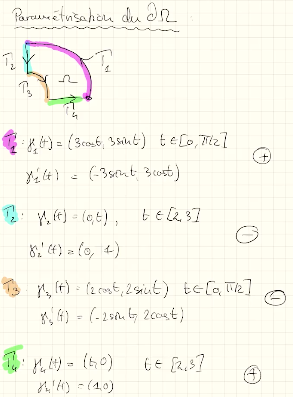 Paramétrisation du ∂Ω
Γ1
Γ2
Ω
Γ3
Γ4
Γ1 : γ1(t) = (3cost, 3sint) t∈[0, π/2]
⊕
γ1'(t) = (-3sint, 3cost)
Γ2 : γ2(t) = (0,t), t∈[2,3]
⊖
γ2'(t) = (0, 1)
Γ3 : γ3(t) = (2cost, 2sint) t∈[0, π/2]
⊖
γ3'(t) = (-2sint, 2cost)
Γ4 : γ4(t) = (t,0) t∈[2,3]
γ4'(t) = (1,0)
⊕